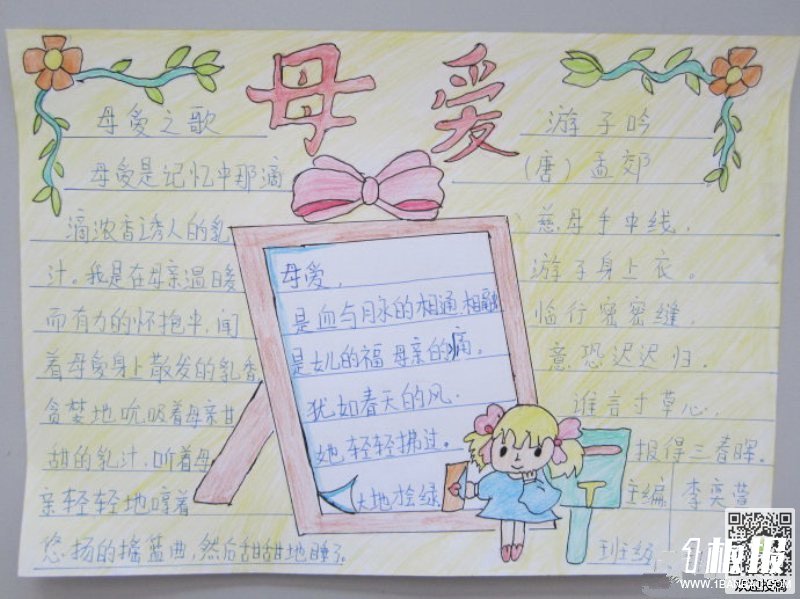 母爱
母爱之歌
母爱是记忆中那滴
滴浓香诱人的乳
汁。我是在母亲温暖
而有力的怀抱中,闻
着母爱身上散发的乳香
贪婪地吮吸着母亲甘
甜的乳汁,听着母
亲轻轻地哼着
悠扬的摇篮曲,然后甜甜地睡了
母爱,
是血与脉的相通相融
是女儿的福 母亲的痛。
犹如春天的风
她轻轻拂过。
大地桧绿
游子吟
(唐)孟郊
慈母手中线,
游子身上衣。
临行密密缝,
意恐迟迟归.
谁言寸草心,
报得三春晖。
主编 李奕萱
班级
1板报
WWW.1BANBAO.COM
欢迎投稿